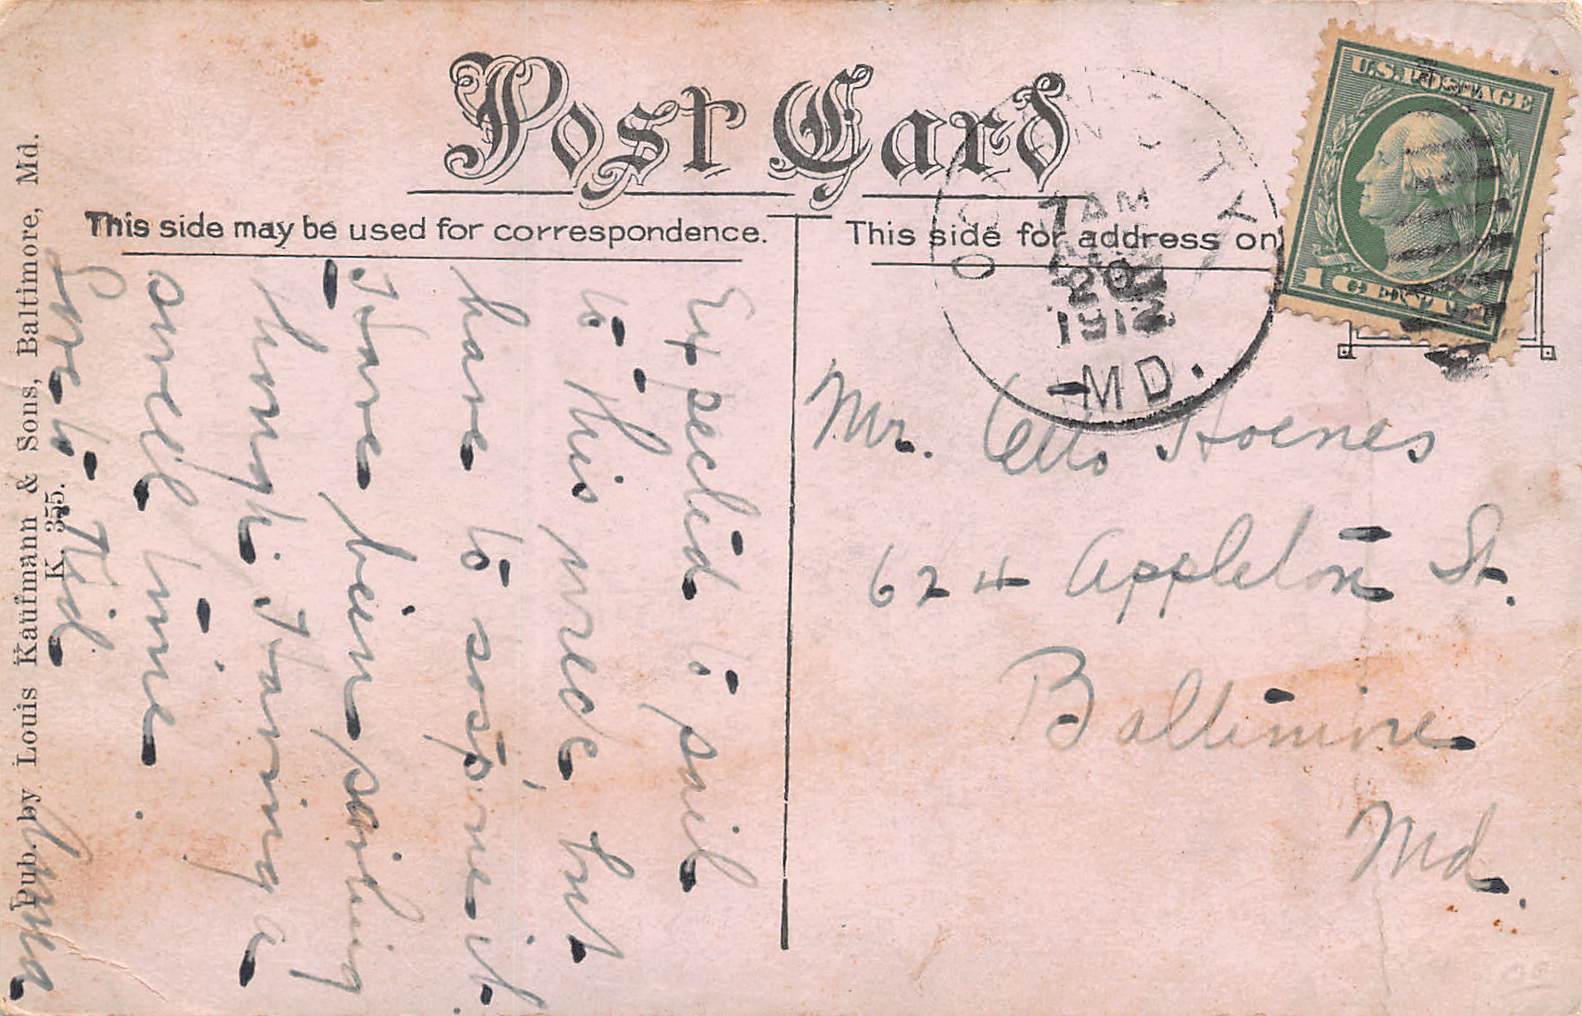 Post Card
This side may be used for correspondence.
This side for address on
U.S. POSTAGE
1 CENT
OCEAN CITY
7 AM
20
1912
MD.
Mr. Otto Hoenes
624 Appleton St.
Baltimore
Md.
Expected to sail
to this week, but
have to sospone it.
Have been sailing
though. Having a
swell time.
Love to Tid
Anna
Pub. by Louis Kaufmann & Sons, Baltimore, Md.
K. 355.